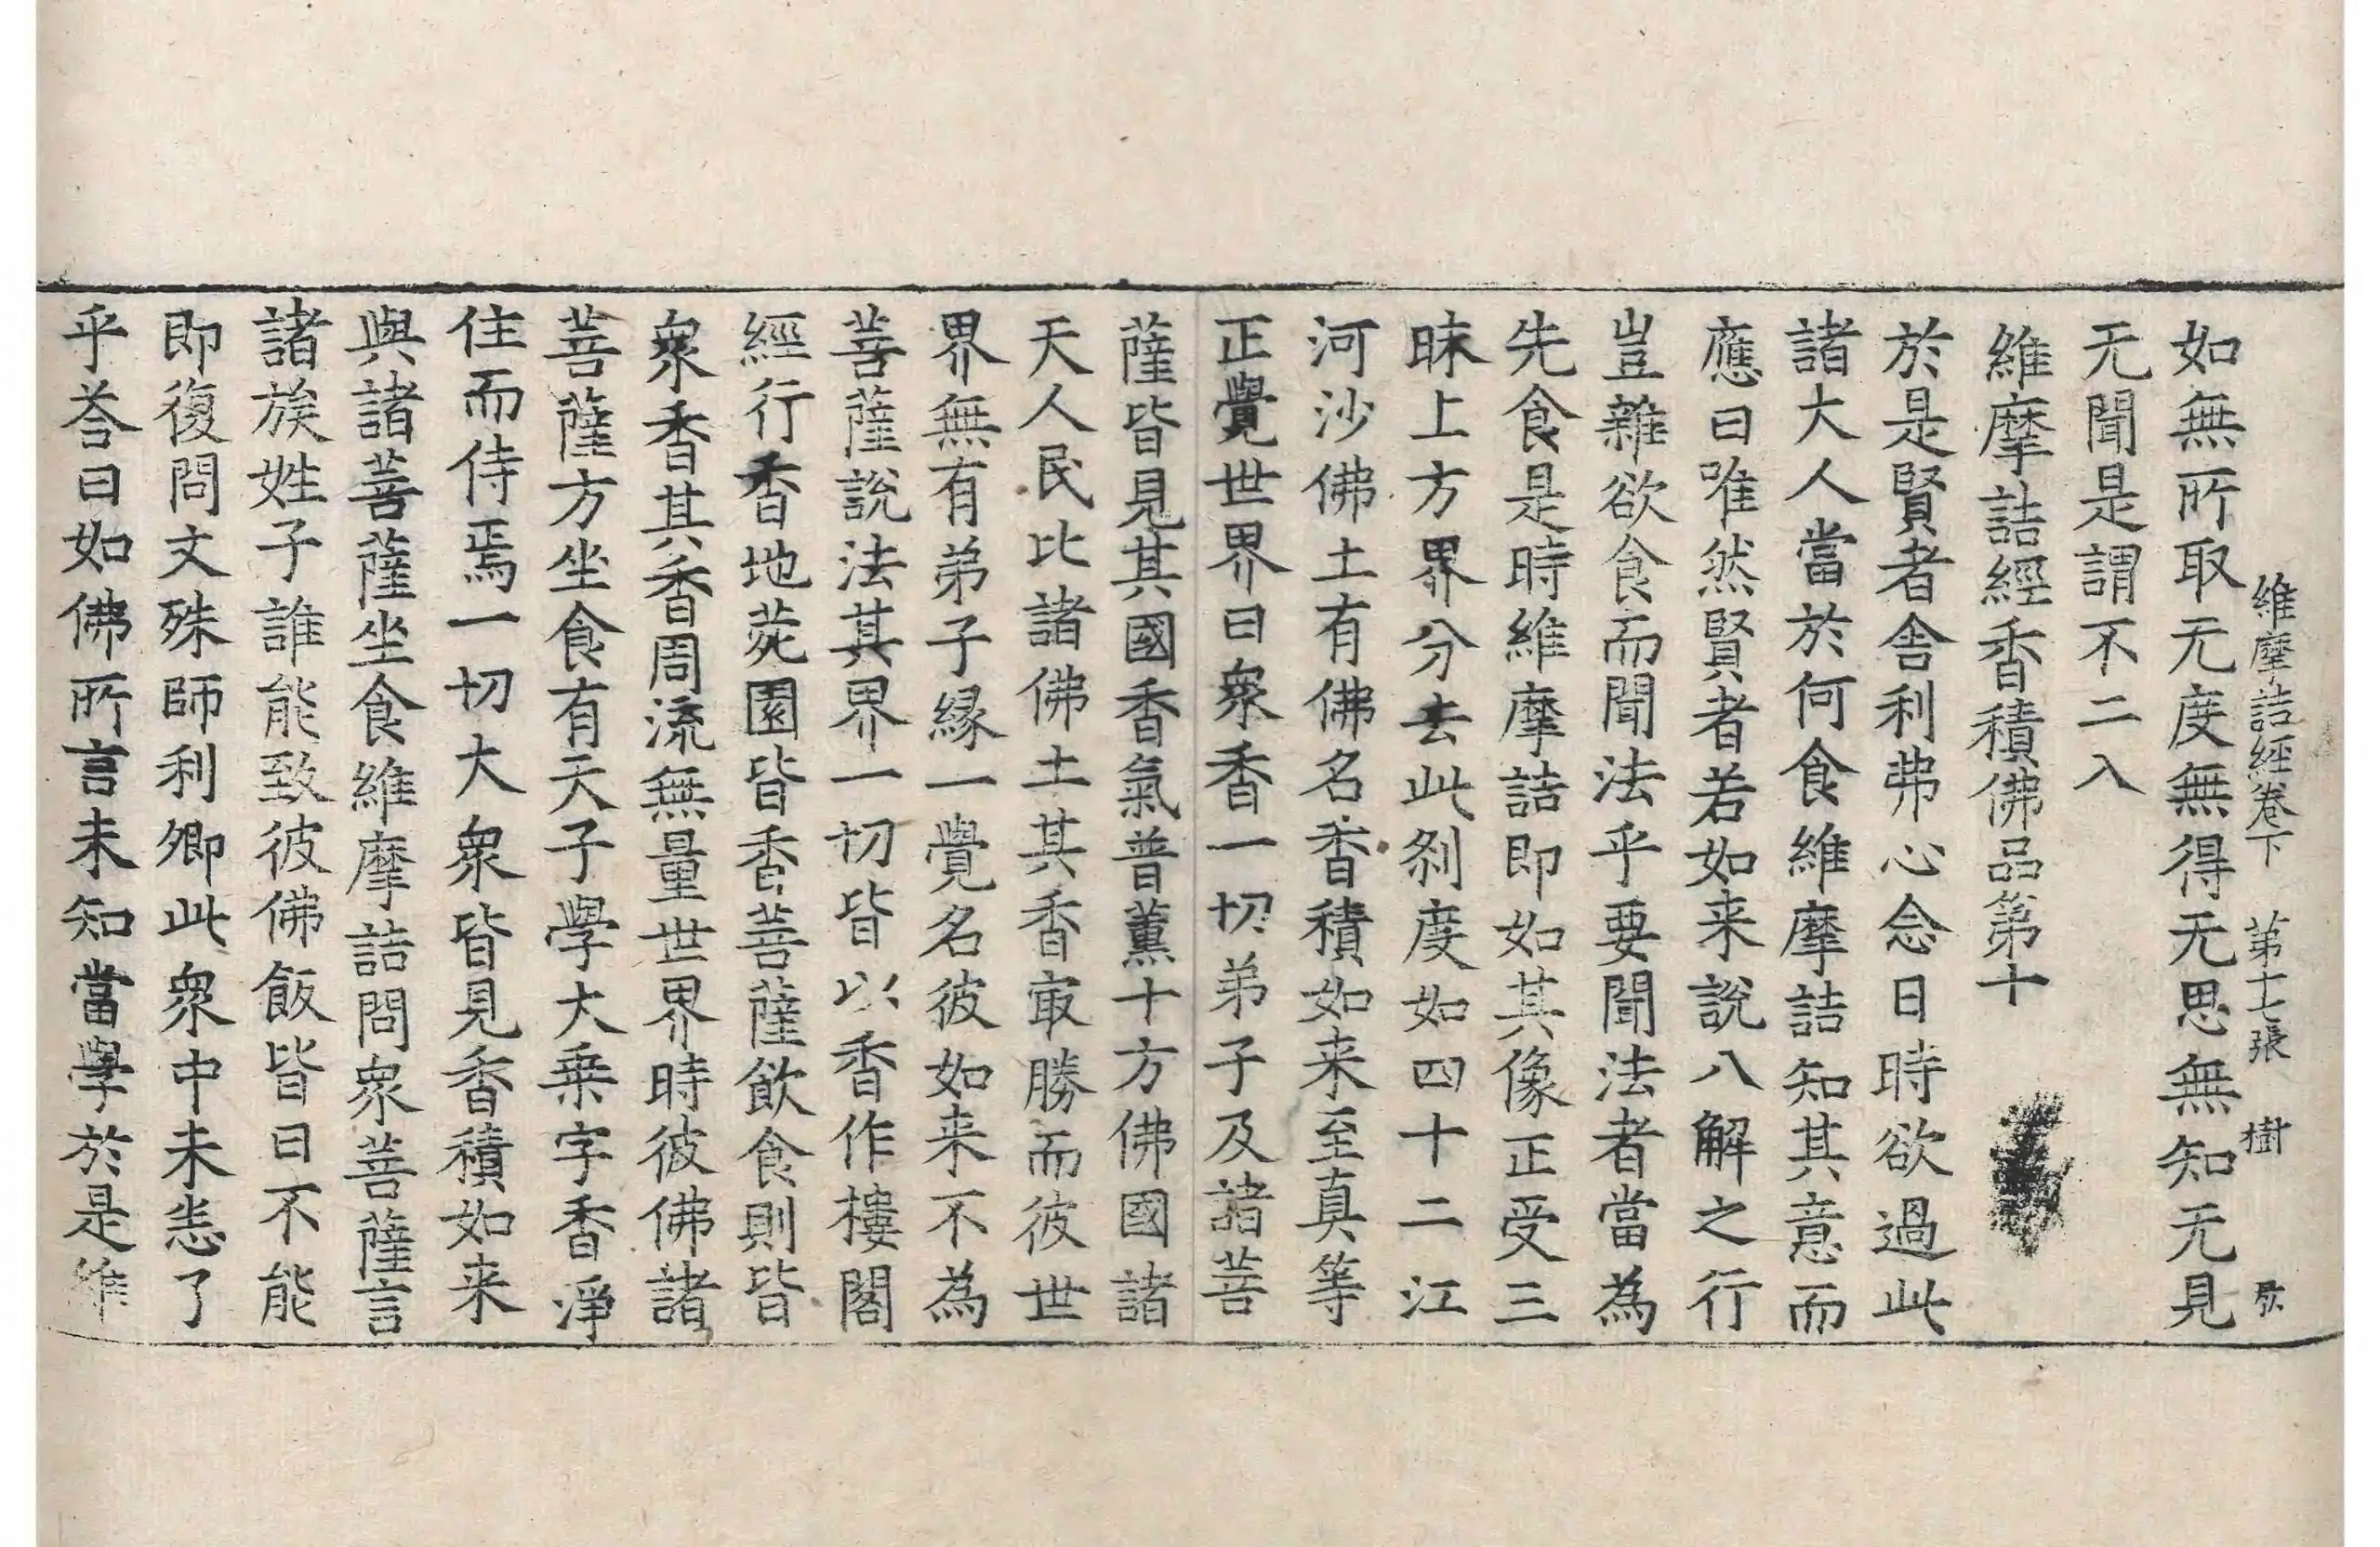 維摩詰經卷下　第十七張　樹
如無所取无度無得无思無知无見
无聞是謂不二入
維摩詰經香積佛品第十
於是賢者舍利弗心念日時欲過此
諸大人當於何食維摩詰知其意而
應曰唯然賢者若如来說八解之行
豈雜欲食而聞法乎要聞法者當為
先食是時維摩詰即如其像正受三
昧上方界分去此刹度如四十二江
河沙佛土有佛名香積如来至真等
正覺世界曰衆香一切弟子及諸菩
薩皆見其國香氣普薰十方佛國諸
天人民比諸佛土其香㝡勝而彼世
界無有弟子緣一覺名彼如来不為
菩薩說法其界一切皆以香作樓閣
經行香地苑園皆香菩薩飲食則皆
衆香其香周流無量世界時彼佛諸
菩薩方坐食有天子學大乗字香淨
住而侍焉一切大衆皆見香積如来
與諸菩薩坐食維摩詰問衆菩薩言
諸族姓子誰能致彼佛飯皆曰不能
即復問文殊師利卿此衆中未悉了
乎荅曰如佛所言未知當學於是維